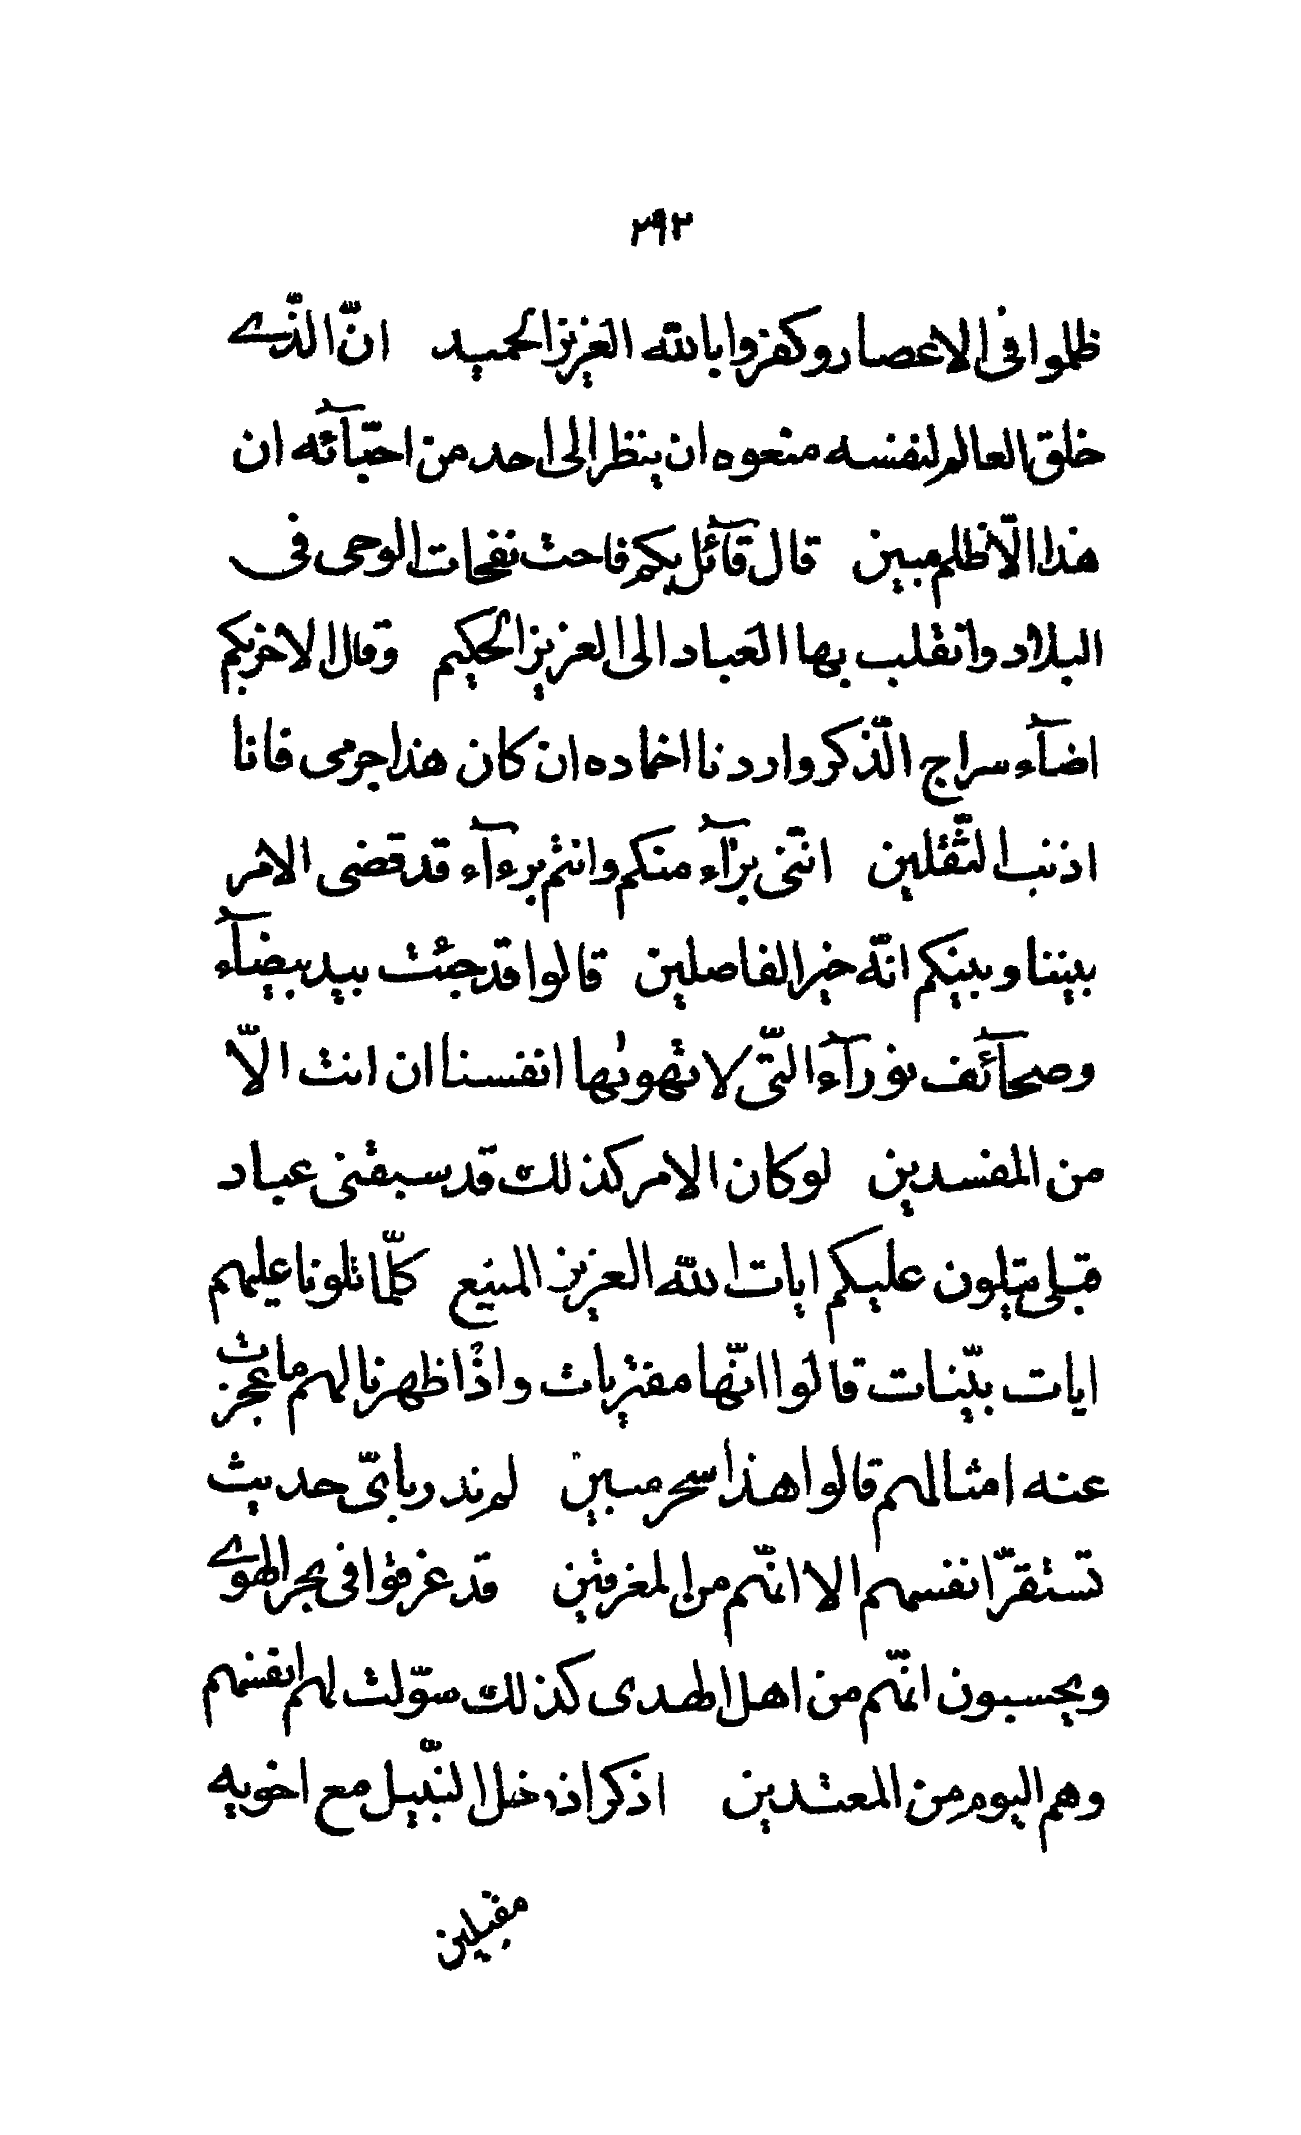 ٢٩٢
ظلموا فى الاعصار و كفروا بالله العزيز الحميد انّ الّذى
خلق العالم لنفسه منعوه ان ينظر الى احد من احبّآئه ان
هذا الّا ظلم مبين قال قآئل بكم فاحت نفحات الوحى فى
البلاد و اتقلب بها العباد الى العزيز الحكيم و قال الاخر بكم
اضآء سراج الّذكر و اردنا اخماده ان كان هذا جرمى فانا
اذنب الثّقلين انّنى برآء منكم و انتم برءآء قد قضى الامر
بيننا و بينكم انّه خير الفاصلين قالوا قد جئت بيد بيضآء
و صحآئف نورآء الّتى لا تهويها انفسنا ان انت الّا
من المفسدين لو كان الامر كذلك قد سبقنى عباد
قبلى يتلون عليكم ايات الله العزيز المنيع كلّما تلونا عليهم
ايات بيّنات قالوا انّها مفتريات و اذا اظهرنا لهم ما عجزت
عنه امثالهم قالوا هذا سحر مبين لم ندر باىّ حديث
تستقرّ انفسهم الا انّهم من المغرقين قد غرقوا فى بحر الهوى
و يحسبون انّهم من اهل الهدى كذلك سوّلت لهم انفسهم
و هم اليوم من المعتدين اذكر اذ دخل النّبيل مع اخويه
مقبلين